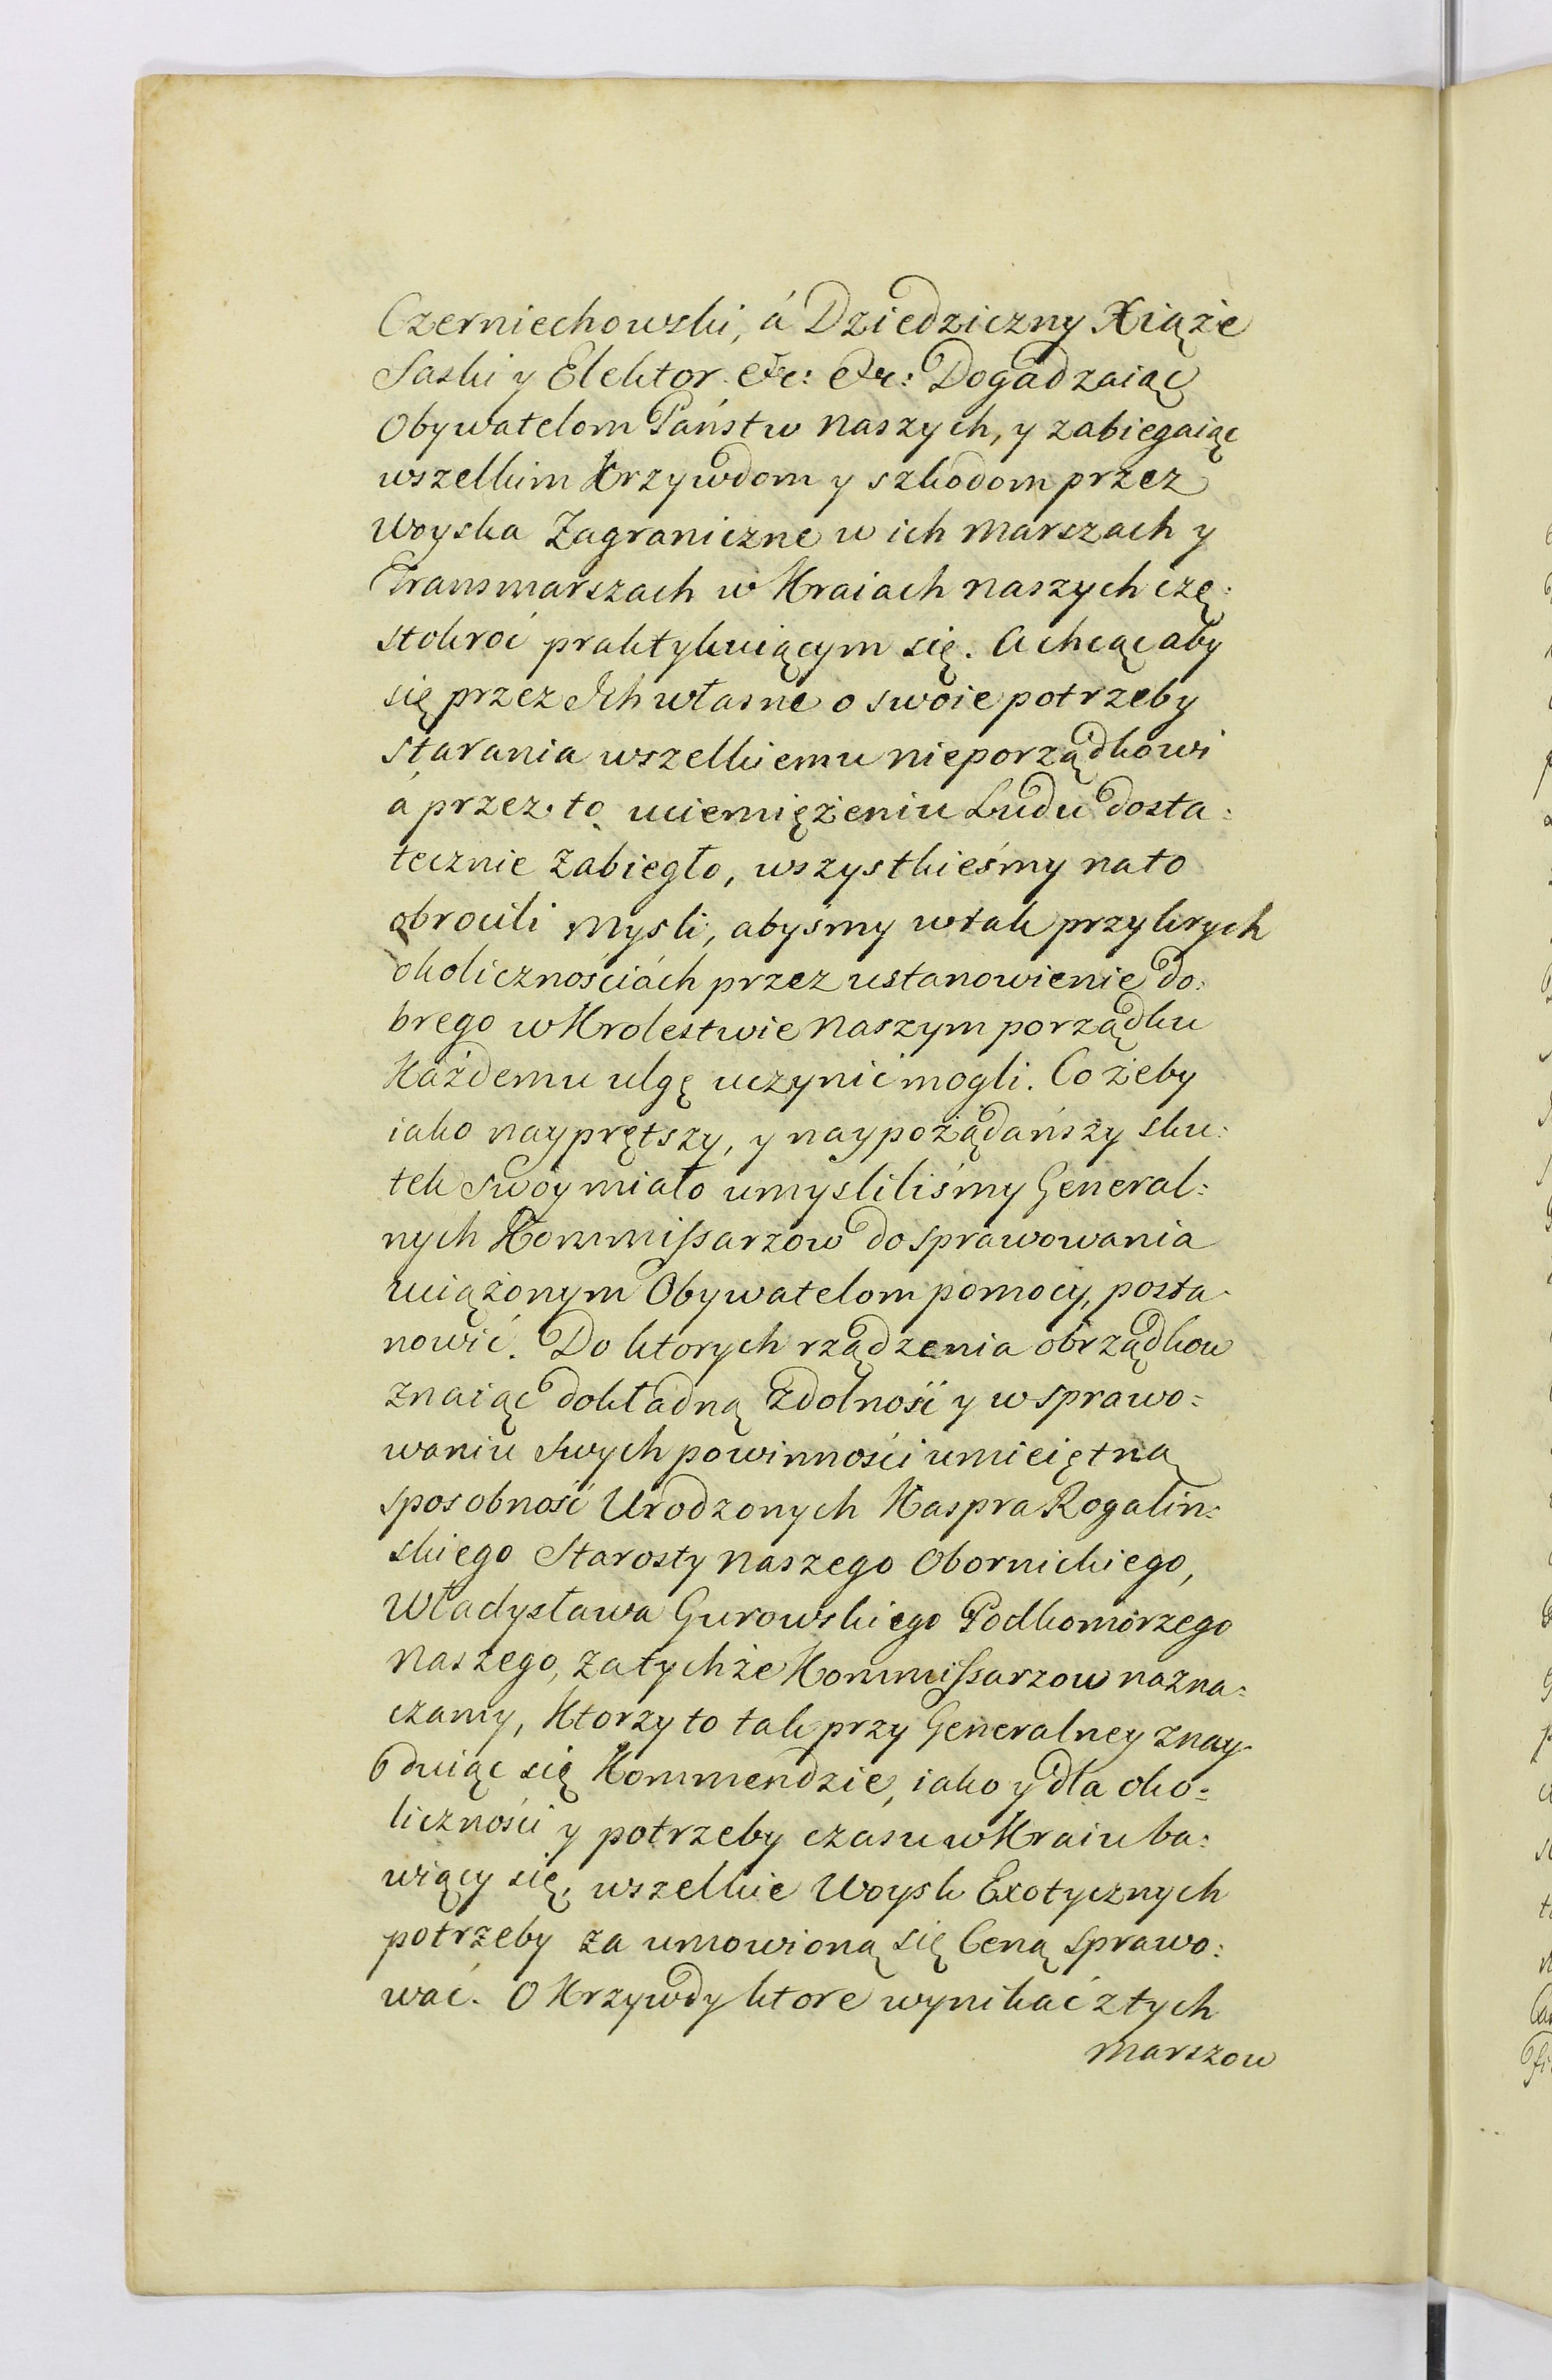 Czerniechowski, á Dziedziczny Xiąże
Saski y Elektor &c: &c: Dogadzaiąc
Obywatelom Państw naszych, y zabiegaiąc
wszelkim Krzywdom y szkodom przez
Woyska Zagraniczne w ich marszach y
Transmarszach w Kraiach naszych czę:
stokroć praktykuiącym się. A chcąc aby
się przez Ich własne o swoie potrzeby
starania wszelkiemu nieporządkowi
á przez to uciemiężeniu Ludu dosta:
tecznie zabiegło, wszystkieśmy na to
obrocili mysli, abyśmy w tak przykrych
okolicznościách przez ustanowienie do:
brego w Krolestwie naszym porządku
Każdemu ulgę uczynić mogli. Co żeby
iako nayprętszy, y naypożądańszy sku:
tek swoy miało umyslilismy General:
nych Kommissarzow do sprawowania
uciążonym Obywatelom pomocy, posta-
nowić. Do ktorych rządzenia obrządkow
znaiąc dokładną zdolność y w sprawo:
waniu swych powinności umieiętną
sposobność Urodzonych Kaspra Rogalin:
skiego Starosty naszego Obornickiego,
Władysława Gurowskiego Podkomorzego
naszego, za tychże Kommissarzow nazna:
czamy, Ktorzy to tak przy Generalney znay-
duiąc się Kommendzie, iako y dla oko:
liczności y potrzeby czasu w Kraiu ba:
wiący się, wszelkie Woysk Exotycznych
potrzeby za umowioną się Ceną sprawo:
wać. O Krzywdy ktore wynikać z tych
marszow